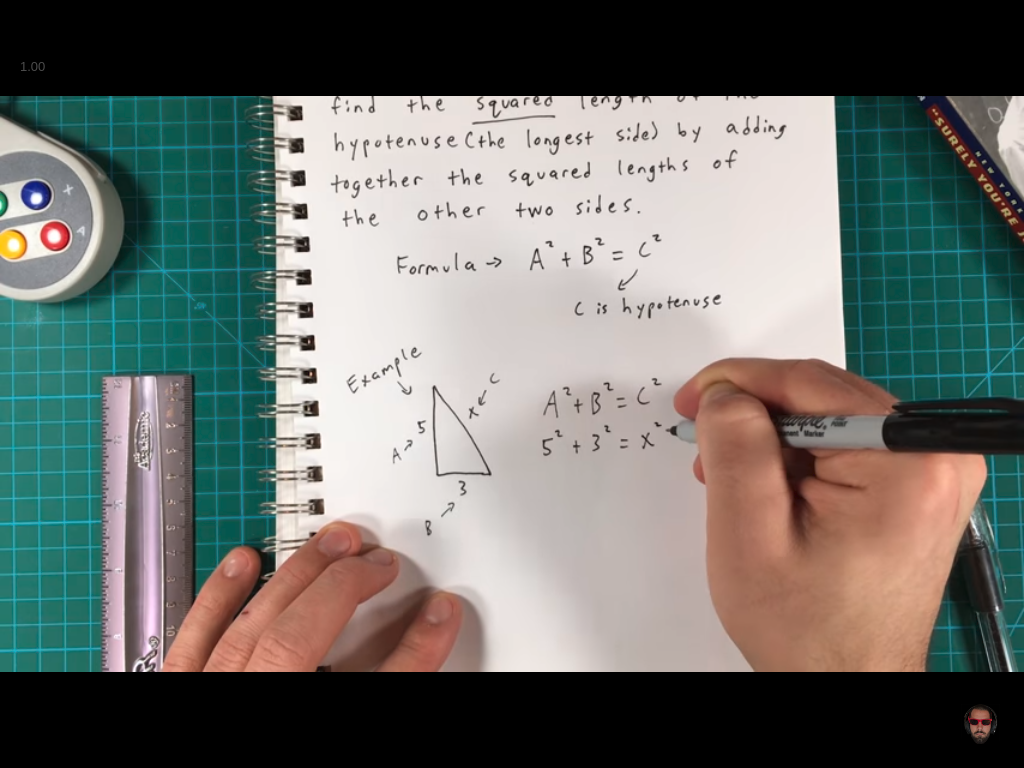 1.00
find the squared length of the
hypotenuse (the longest side) by adding
together the squared lengths of
the other two sides.
Formula → A² + B² = C²
C is hypotenuse
Example
C
x
5
A
3
B
A² + B² = C²
5² + 3² = x²
"SURELY YOU'RE
NEW YORK